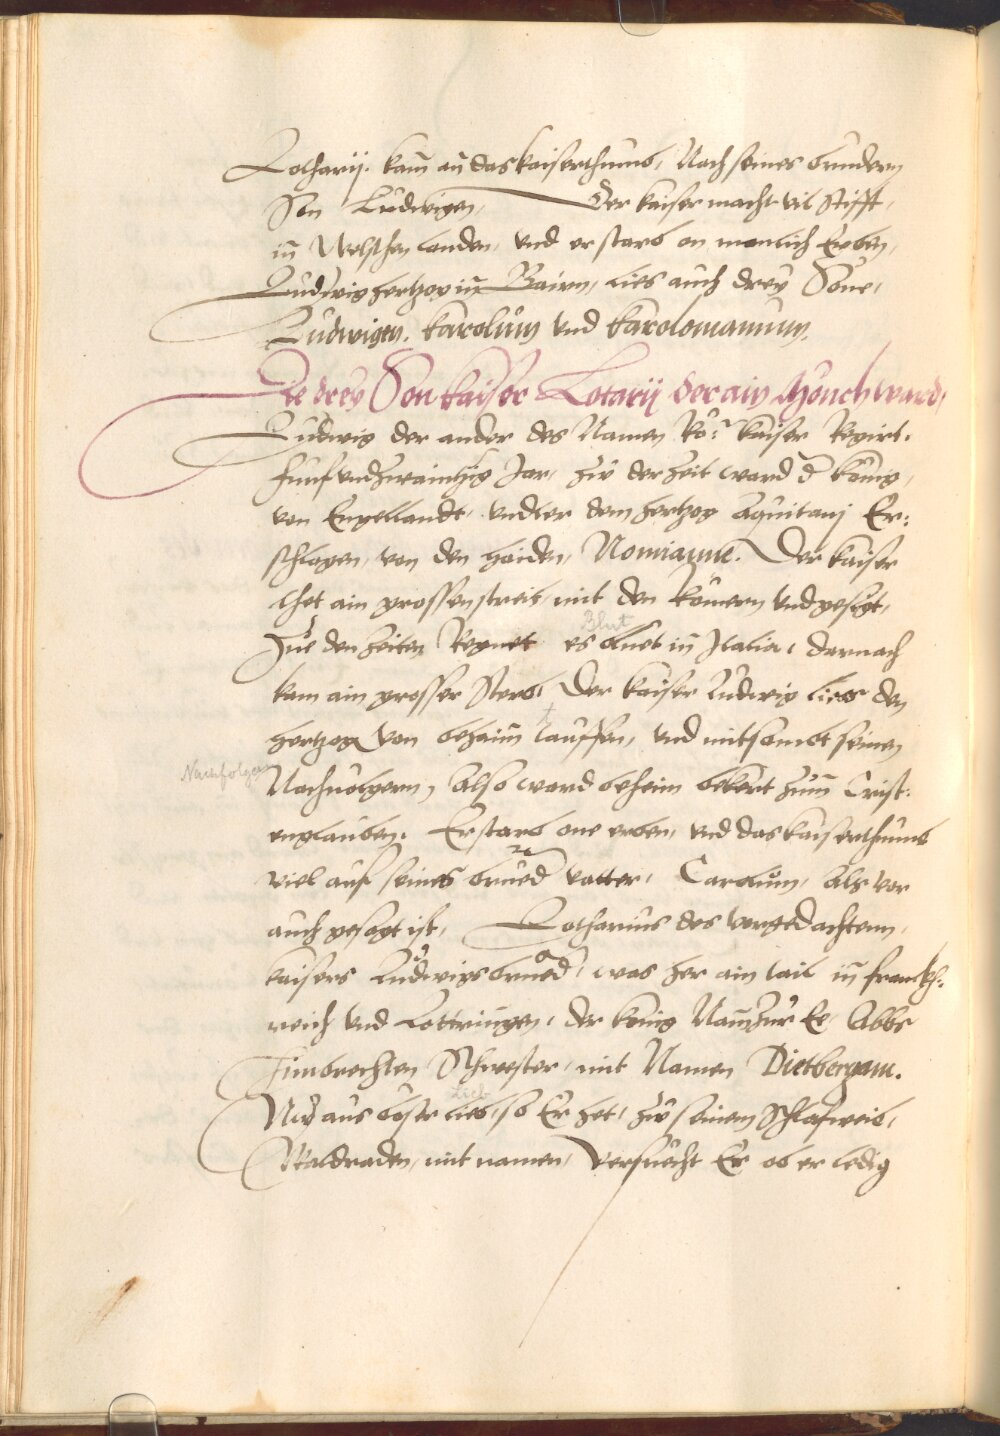 Lotharij. kam an das kaiserthumb, Nach seines bruedern
Son Ludwigen, Der kaiser macht vil Stifft,
in Welschen landen, vnd er starb on manlich Erben,
Ludwig hertzog in Bairn, lies auch drey Söne,
Ludwigen. Karolum vnd Karolomannum.
Die drey Son kaiser Lotarij der ain Münch ward,
Ludwig der ander des Namen Rö: kaiser Regirt.
funf vnd zwaintzig Jar, zw der zeit ward d könig,
von Engellandt, vnd der dem hertzog Aquitanj Er:
schlagen, von den haiden, Der kaiser
thet ain grossen streit, mit den Römern vnd gesigt,
Blut
Zue den zeiten Regnet es bluet in Italia, darnach
kam ain grosser sterb, Der kaiser Ludwig lies den
hertzog von behaim tauffen, vnd mitsambt seinen
Nachfolgern
Nachuolgern, Also ward beheim bekert zum Crist:
englauben. Er starb one erben, vnd das kaiserthumb
viel auf seines brued vatter, Carolum, Als vor
auch gesagt ist, Lotharius des vorgedachtenn,
kaisers Ludwigs brued, was her ain tail in franckh:
reich vnd Lottringen, der könig Nam zur Ee, Abbt
Schwester, mit Namen Dietbergam.
Lieb
Nw aus böser lieb, so Er het, zw seinem Schlafweib,
Waldraden, mit namen, Versuecht Er ob er ledig